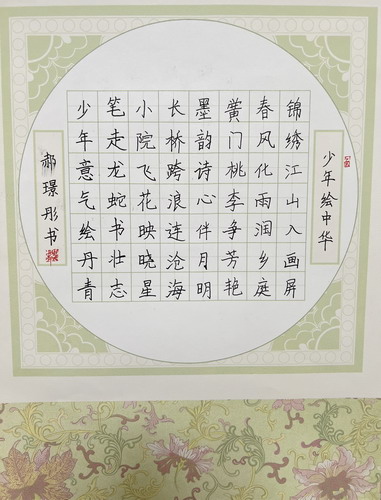 少年绘中华
锦绣江山入画屏
春风化雨润乡庭
黉门桃李争芳艳
墨韵诗心伴月明
长桥跨浪连沧海
小院飞花映晓星
笔走龙蛇书壮志
少年意气绘丹青
郝璟彤书